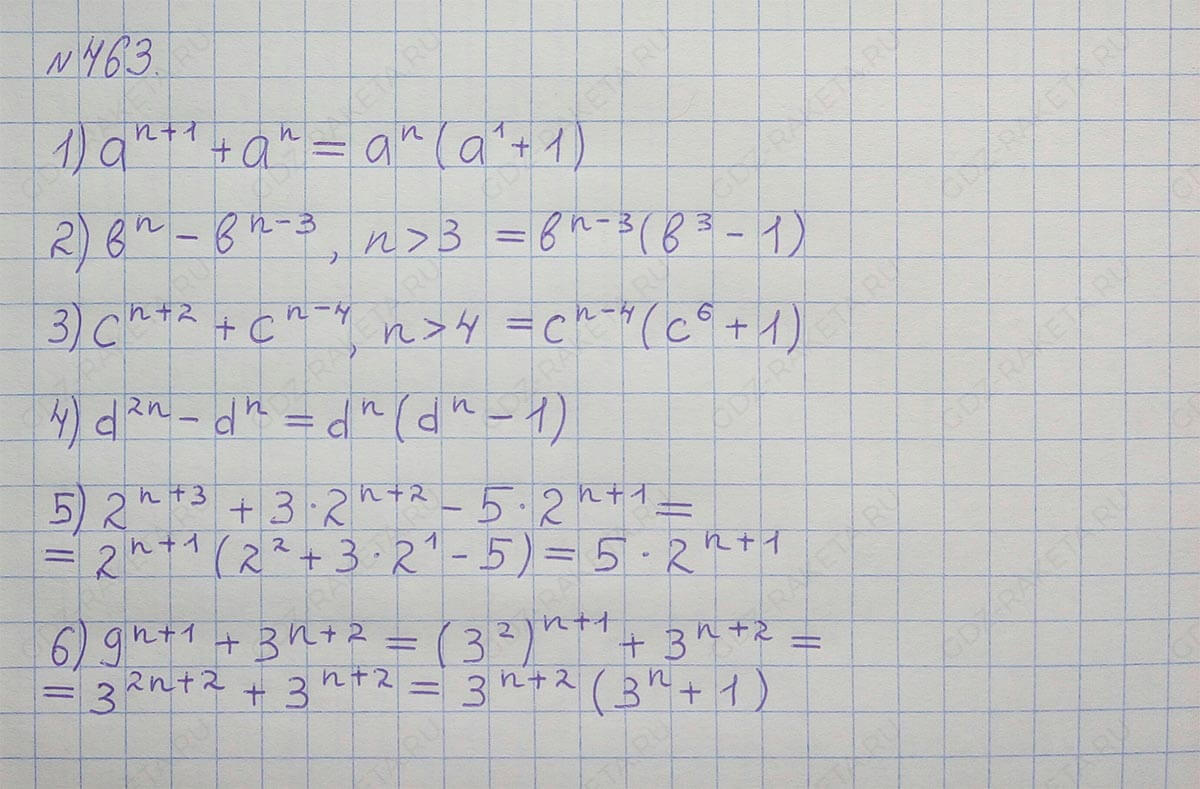 №463.
1) aⁿ⁺¹ + aⁿ = aⁿ (a¹ + 1)
2) вⁿ − вⁿ⁻³, n > 3 = вⁿ⁻³(в³ − 1)
3) cⁿ⁺² + cⁿ⁻⁴, n > 4 = cⁿ⁻⁴(c⁶ + 1)
4) d²ⁿ − dⁿ = dⁿ (dⁿ − 1)
5) 2ⁿ⁺³ + 3·2ⁿ⁺² − 5·2ⁿ⁺¹ =
= 2ⁿ⁺¹ (2² + 3·2¹ − 5) = 5·2ⁿ⁺¹
6) 9ⁿ⁺¹ + 3ⁿ⁺² = (3²)ⁿ⁺¹ + 3ⁿ⁺² =
= 3²ⁿ⁺² + 3ⁿ⁺² = 3ⁿ⁺² (3ⁿ + 1)
GDZ-RAKETA.RU